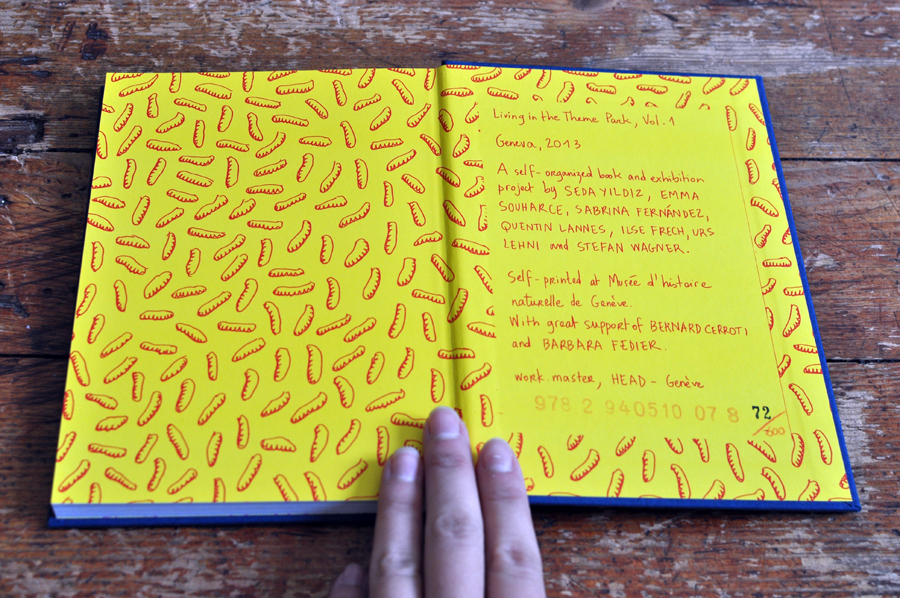 Living in the Theme Park, Vol. 1
Geneva, 2013
A self-organized book and exhibition
project by SEDA YILDIZ, EMMA
SOUHARCE, SABRINA FERNÁNDEZ,
QUENTIN LANNES, ILSE FRECH, URS
LEHNI and STEFAN WAGNER.
Self-printed at Musée d'histoire
naturelle de Genève.
With great support of BERNARD CERROTI
and BARBARA FEDIER.
work.master, HEAD - Genève
978 2 940510 07 8 72
/200